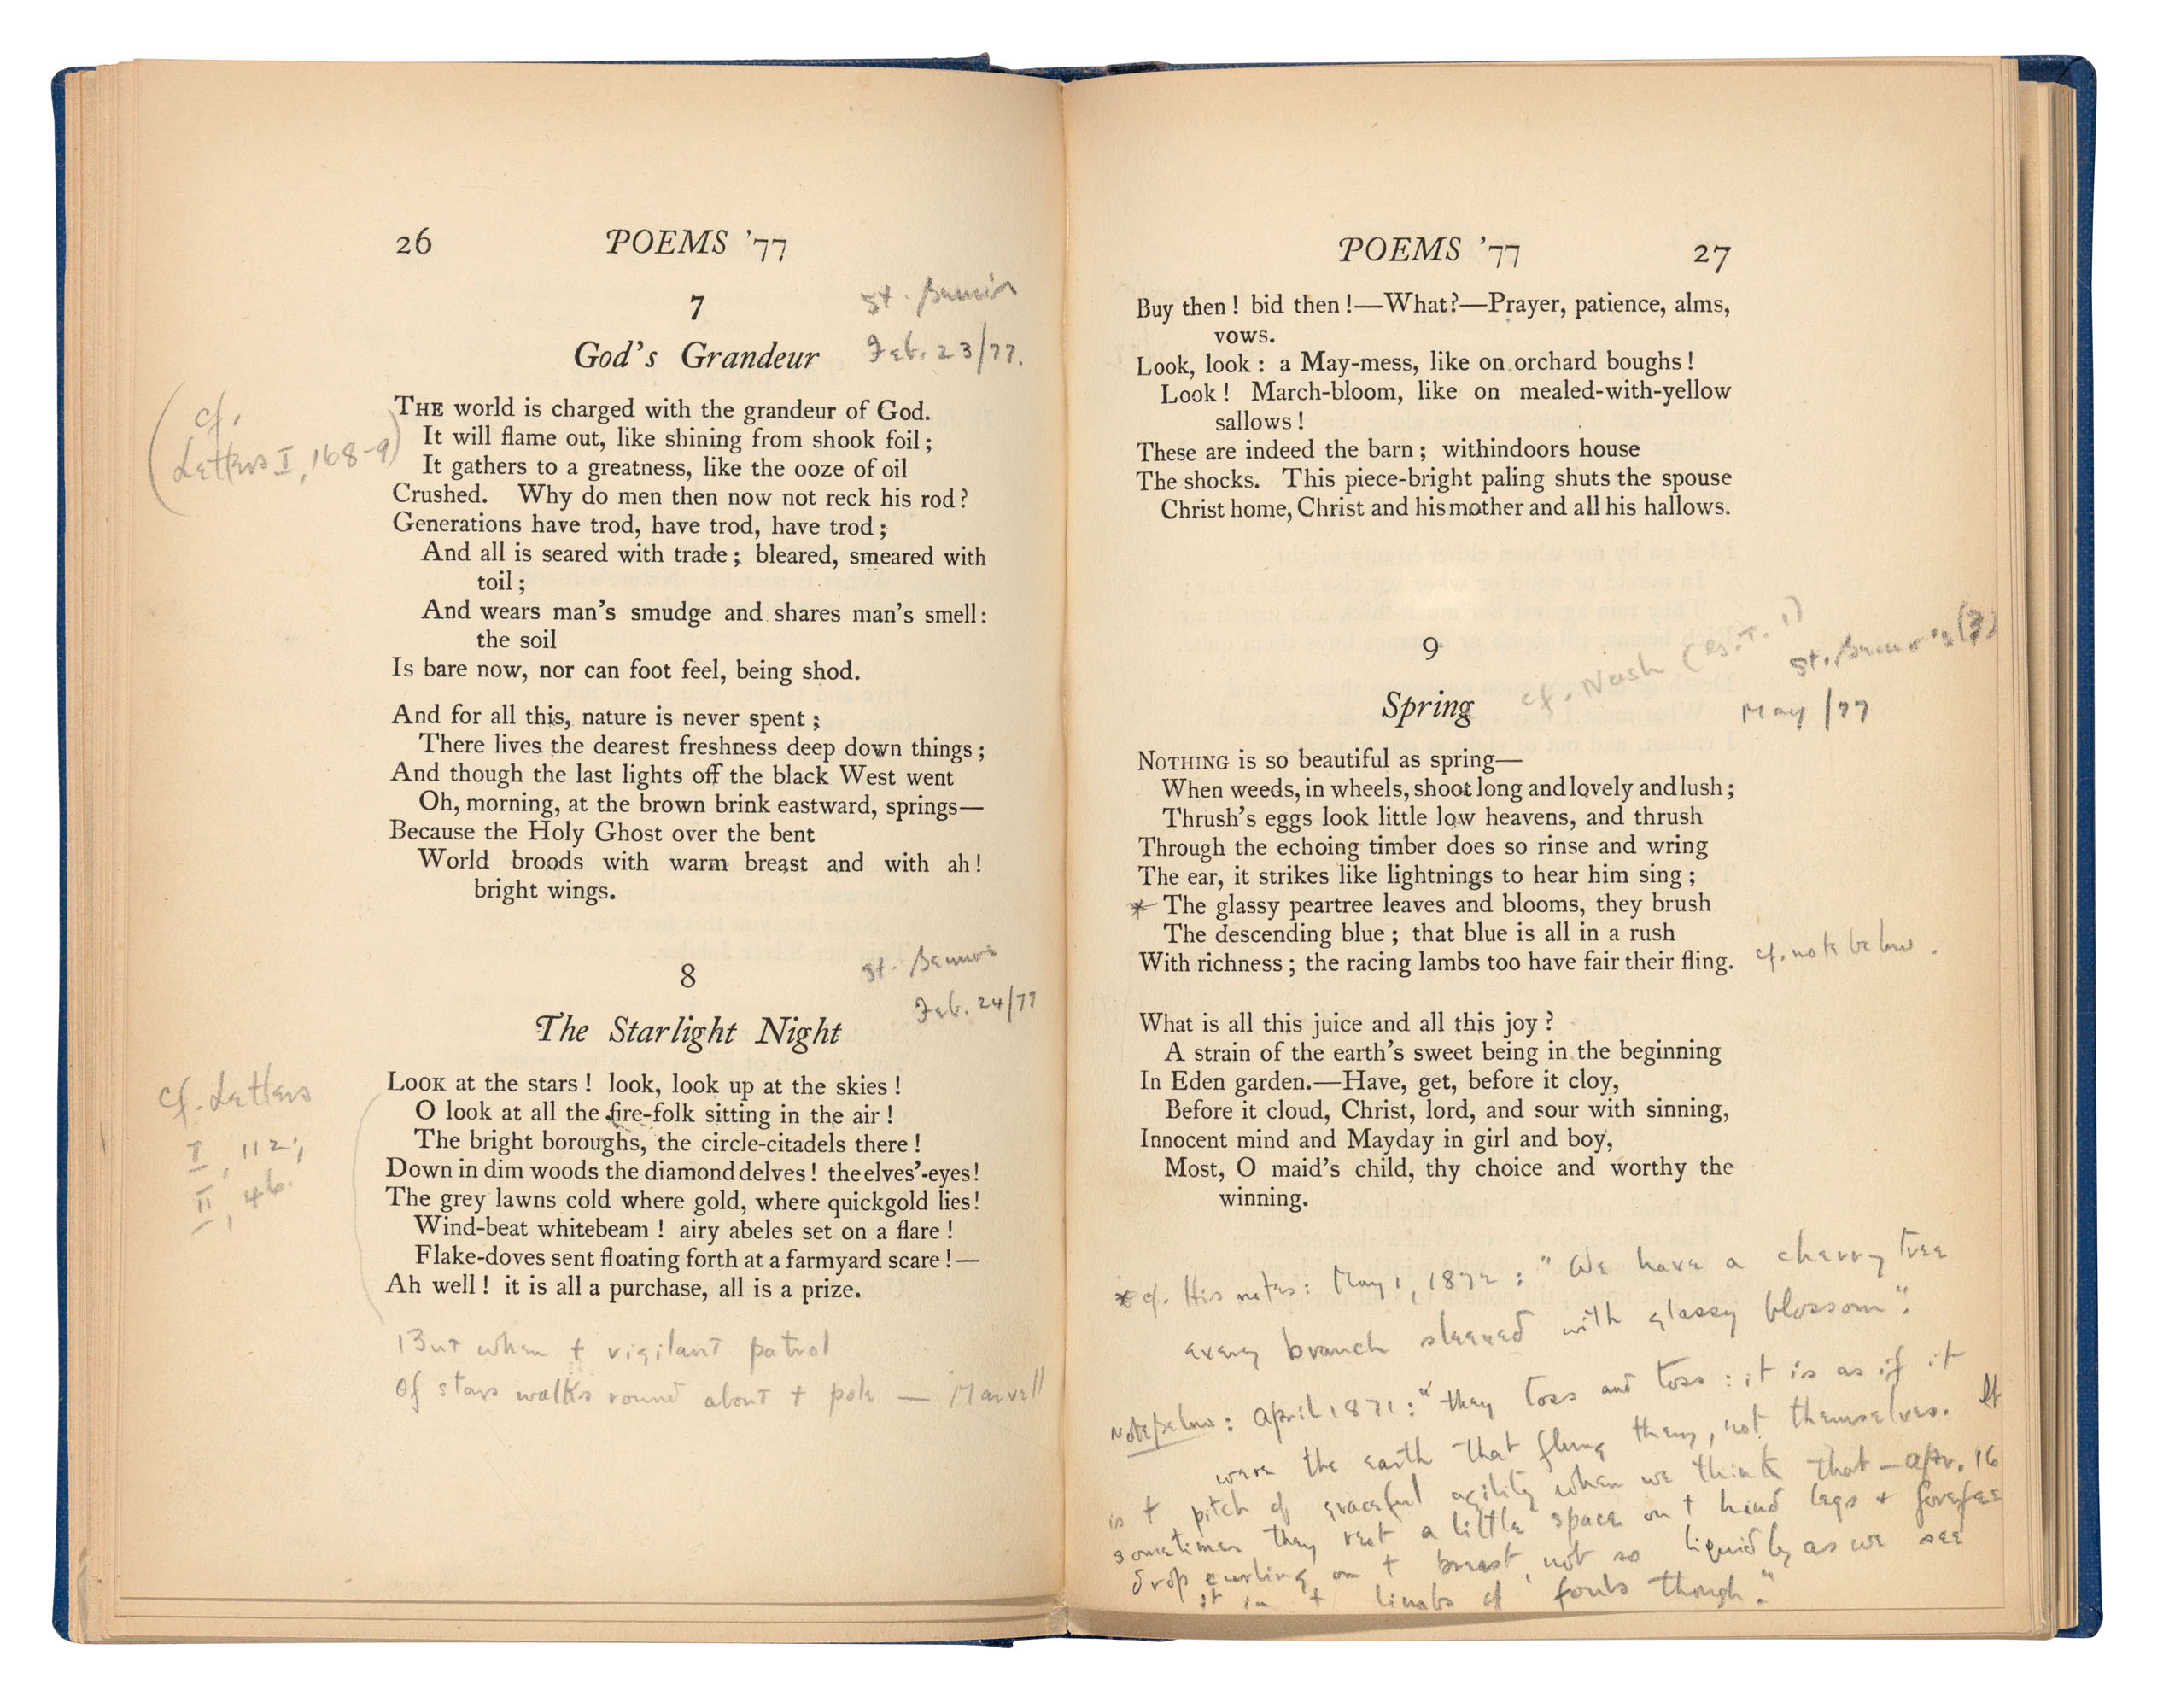 26 POEMS ’77
7
St. Beuno's
Feb. 23/77.
God’s Grandeur
(cf.
Letters I, 168-9)
THE world is charged with the grandeur of God.
It will flame out, like shining from shook foil ;
It gathers to a greatness, like the ooze of oil
Crushed. Why do men then now not reck his rod?
Generations have trod, have trod, have trod ;
And all is seared with trade ; bleared, smeared with
toil ;
And wears man’s smudge and shares man’s smell:
the soil
Is bare now, nor can foot feel, being shod.
And for all this, nature is never spent ;
There lives the dearest freshness deep down things ;
And though the last lights off the black West went
Oh, morning, at the brown brink eastward, springs—
Because the Holy Ghost over the bent
World broods with warm breast and with ah!
bright wings.
8
St. Beunos
Feb. 24/77
The Starlight Night
cf. Letters
I, 112;
II, 46.
LOOK at the stars ! look, look up at the skies !
O look at all the fire-folk sitting in the air !
The bright boroughs, the circle-citadels there !
Down in dim woods the diamond delves ! the elves’-eyes!
The grey lawns cold where gold, where quickgold lies!
Wind-beat whitebeam ! airy abeles set on a flare !
Flake-doves sent floating forth at a farmyard scare !—
Ah well ! it is all a purchase, all is a prize.
But when + vigilant patrol
Of stars walks round about + pole — Marvell
POEMS ’77 27
Buy then ! bid then !—What?—Prayer, patience, alms,
vows.
Look, look : a May-mess, like on orchard boughs !
Look ! March-bloom, like on mealed-with-yellow
sallows !
These are indeed the barn ; withindoors house
The shocks. This piece-bright paling shuts the spouse
Christ home, Christ and his mother and all his hallows.
9
cf. Nash
St. Beuno's (?)
May /77
Spring
NOTHING is so beautiful as spring—
When weeds, in wheels, shoot long and lovely and lush ;
Thrush’s eggs look little low heavens, and thrush
Through the echoing timber does so rinse and wring
The ear, it strikes like lightnings to hear him sing ;
* The glassy peartree leaves and blooms, they brush
The descending blue ; that blue is all in a rush
With richness ; the racing lambs too have fair their fling. cf. note below.
What is all this juice and all this joy ?
A strain of the earth’s sweet being in the beginning
In Eden garden.—Have, get, before it cloy,
Before it cloud, Christ, lord, and sour with sinning,
Innocent mind and Mayday in girl and boy,
Most, O maid’s child, thy choice and worthy the
winning.
* cf. His notes: May 1, 1872 : "We have a cherry tree
every branch sleeved with glassy blossom".
Note below : April 1871 : "they toss and toss : it is as if it
were the earth that flung them, not themselves. It
is + pitch of graceful agility when we think that — apr. 16
sometimes they rest a little space on + hind legs + forefeet
drop curling on + breast, not so liquidly as we see
it in + limbs of foals though."